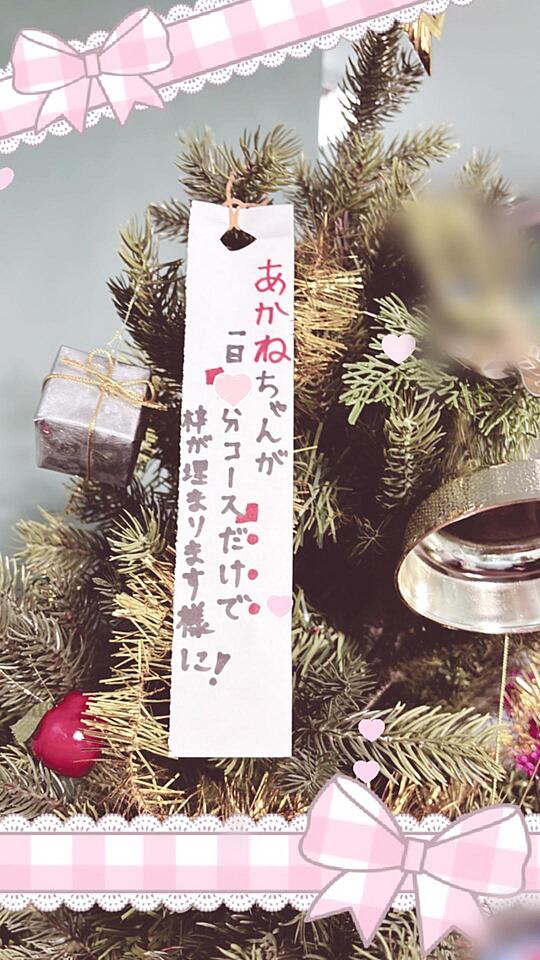 あかねちゃんが
一日分コースだけで
枠が埋まります様に!